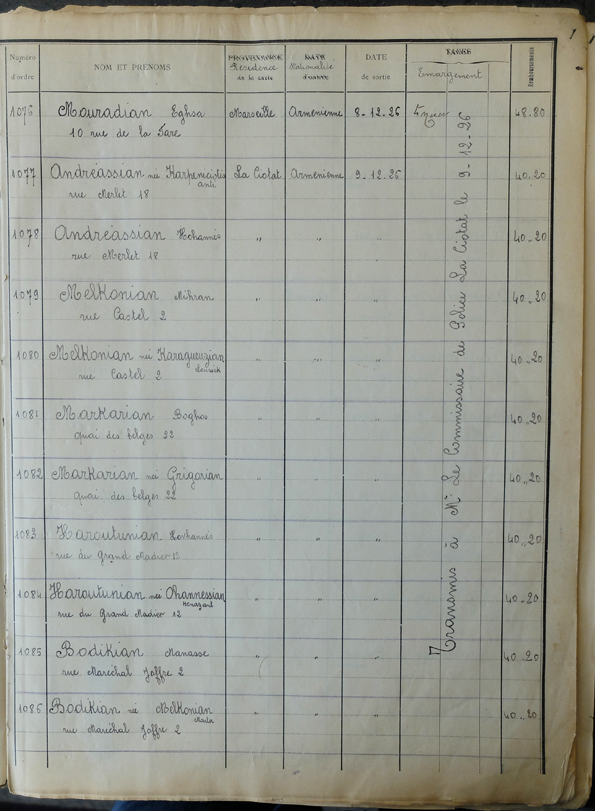 1
Numéro d'ordre NOM ET PRÉNOMS PROVENANCE Résidence DATE Nationalité d'entrée DATE de sortie TAXES Emargement Remboursements
1076 Mouradian Eghsa Marseille Armenienne 8-12-26 48.80
10 rue de la Gare
1077 Andréassian née La Ciotat Armenienne 9-12-26 40.20
rue Merlet 18
1078 Andréassian Hohannès " " " 40.20
rue Merlet 18
1079 Melkonian Mihran " " " 40.20
rue Castel 2
1080 Melkonian née Karagueuzian " " " 40.20
rue Castel 2
1081 Markarian Boghos " " " 40.20
quai des belges 22
1082 Markarian née Grigorian " " " 40.20
quai des belges 22
1083 Haroutunian " " " 40.20
rue du Grand Madier 12
1084 Haroutunian née Ohannessian " " " 40.20
rue du Grand Madier 12
1085 Bodikian Manasse " " " 40.20
rue Maréchal Joffre 2
1086 Bodikian née Melkonian " " " 40.20
rue Maréchal Joffre 2
Transmis à Mr Le Commissaire de Police La Ciotat le 9-12-26